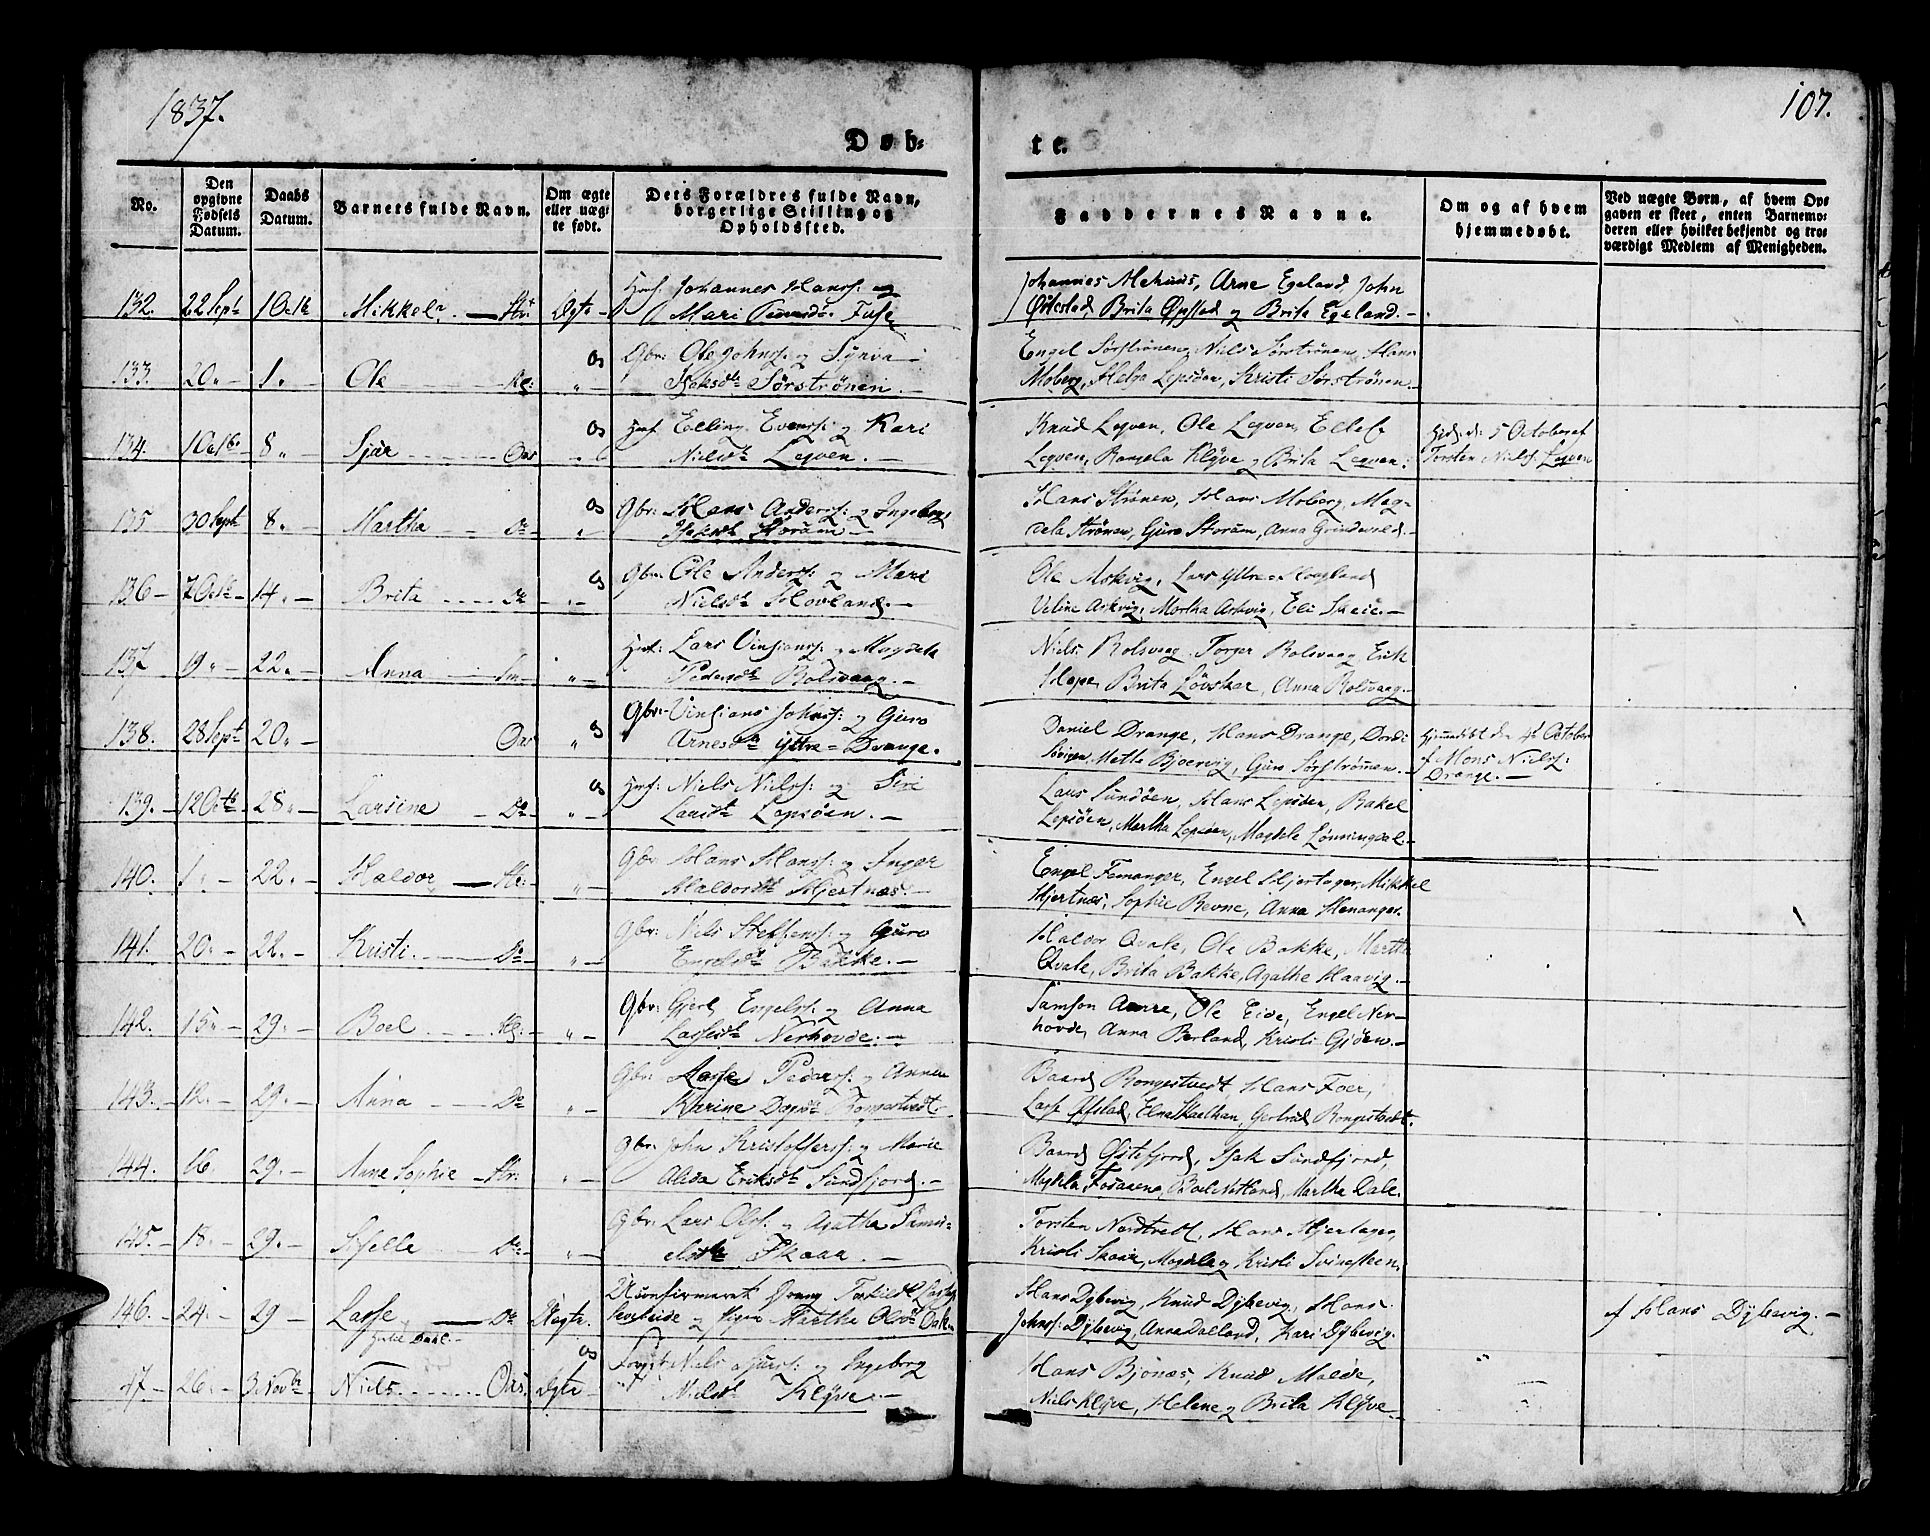 1837.
107.
Døb-
te.
No.
Den opgivne Fødsels Datum.
Daabs Datum.
Barnets fulde Navn.
Om ægte eller uægte født.
Dets Forældres fulde Navn, borgerlige Stilling og Opholdssted.
Faddernes Navne.
Om og af hvem hjemmedøbt.
Ved uægte Børn, af hvem Opgaven er skeet, enten Barnemoderen eller hvilket bekjendt og troværdigt Medlem af Menigheden.
132. 22 Sept 1 Octb Mikkel Ægte Johannes Hanss: og
Mari Fuse
Johannes Mehuus, Arne Egeland, John
Østestad, Brita Opstad og Brita Egeland.
133. 20. 1. Ole Gbr: Ole Johnss: og Synva
Isaksdtr Sørstrønen.
Engel Sørstrønen, Niels Sørstrønen, Hans
Moberg, Helga Lepsøen, Kristi Sørstrønen.
134. 1 Octb. 8. Sjur Elling Evenss: og Kari
Nielsdtr Legven.
Knud Legven, Ole Legven, Ellef
Legven, Rangela Klyve og Brita Legven.
5 October af
Torsten Nielss: Legven
135 30 Sept 8. Martha Do Gbr: Hans Anderss: og Ingeborg
Storøm
Hans Strønen, Hans Moberg, Mag-
dela Strønen, Guro Storøm, Anna Grindevold.
136 7 Octb 14. Brite Do Gbr: Ole Anderss: og Mari
Nielsdtr Hovland.
Ole Askvig, Lars Yttre-Hougland
Veline Askvig, Martha Askvig, Eli Skeie.
137 19 22. Anna Lars Vinsianss: og Magdela
Pedersdtr Rolsvaag.
Niels Rolsvaag, Torger Rolsvaag, Erik
Hope, Brita Løvskar, Anna Rolsvaag.
138. 28 Sept 20. Gbr: Vinsians Johnss: og Guro
Arnesdtr Yttre-Drange.
Daniel Drange, Hans Drange, Dordi
Søvigen, Mette Bjørvig, Guro Sørstrømen.
Hjemmedøbt den 4de October
af Mons Nielss:
Drange.
139. 12 Octb 28. Larsine Do Niels Nielss: og Siri
Larsdtr Lepsøen.
Lars Sundøen, Hans Lepsøen, Rakel
Lepsøen, Martha Lepsøen, Magdele Lønningdal.
140. 1. 22. Haldor Gbr: Hans Hanss: og Inger
Haldorsdtr Hjertnæs.
Engel Femanger, Engel Hjertager, Mikkel
Hjertnæs, Sophie Revne, Anna Henanger.
141. 20. 22. Kristi Do Gbr: Niels Steffenss: og Guro
Engelsdtr Bakke.
Haldor Qvale, Ole Bakke, Martha
Qvale, Brita Bakke, Agathe Haavig.
142. 15. 29. Boel Gbr: Gjert Engelss: og Anna
Lassesdtr Nerhovde.
Samson Aarre, Ole Eide, Engel Ner-
hovde, Anna Berland, Kristi Gjøen.
143. 12. 29. Anna Do Gbr: Lasse Pederss: og Anna
Karine Rongestvedt
Baard Rongestvedt, Hans Foer,
Lasse Opstad, Elna Skaathun, Gertrud Rongestvedt.
144. 16. 29. Anne Sophie Gbr: John Kristoffers: og Marie
Alida Eriksdtr Sundfjord.
Baard Østefjord, Isak Sundfjord,
Magdela Fosaaeno, Boel Natland, Martha Dale.
145. 18. 29. Do Gbr: Lars Olss: og Agatha Samu-
elsdtr Skaar.
Torsten Nordtvedt, Hans Hjertager,
Kristi Skaar, Magdela og Kristi Svingsteen.
146. 24. 29 Lasse Do Uægte Uconfirmeret Dreng
og Pigen Martha Olsdtr
Hans Dybevig, Knud Dybevig, Hans
Johnss: Dybevig, Anna Dalland, Kari Dybevig.
af Hans Dybevig.
47 26. 3 Novbr Niels Oos Ægte Niels Sjurss: og Ingeborg
Nielsdtr Klyve.
Hans Bjønæs, Knud Malde,
Niels Klyve, Helene og Brita Klyve